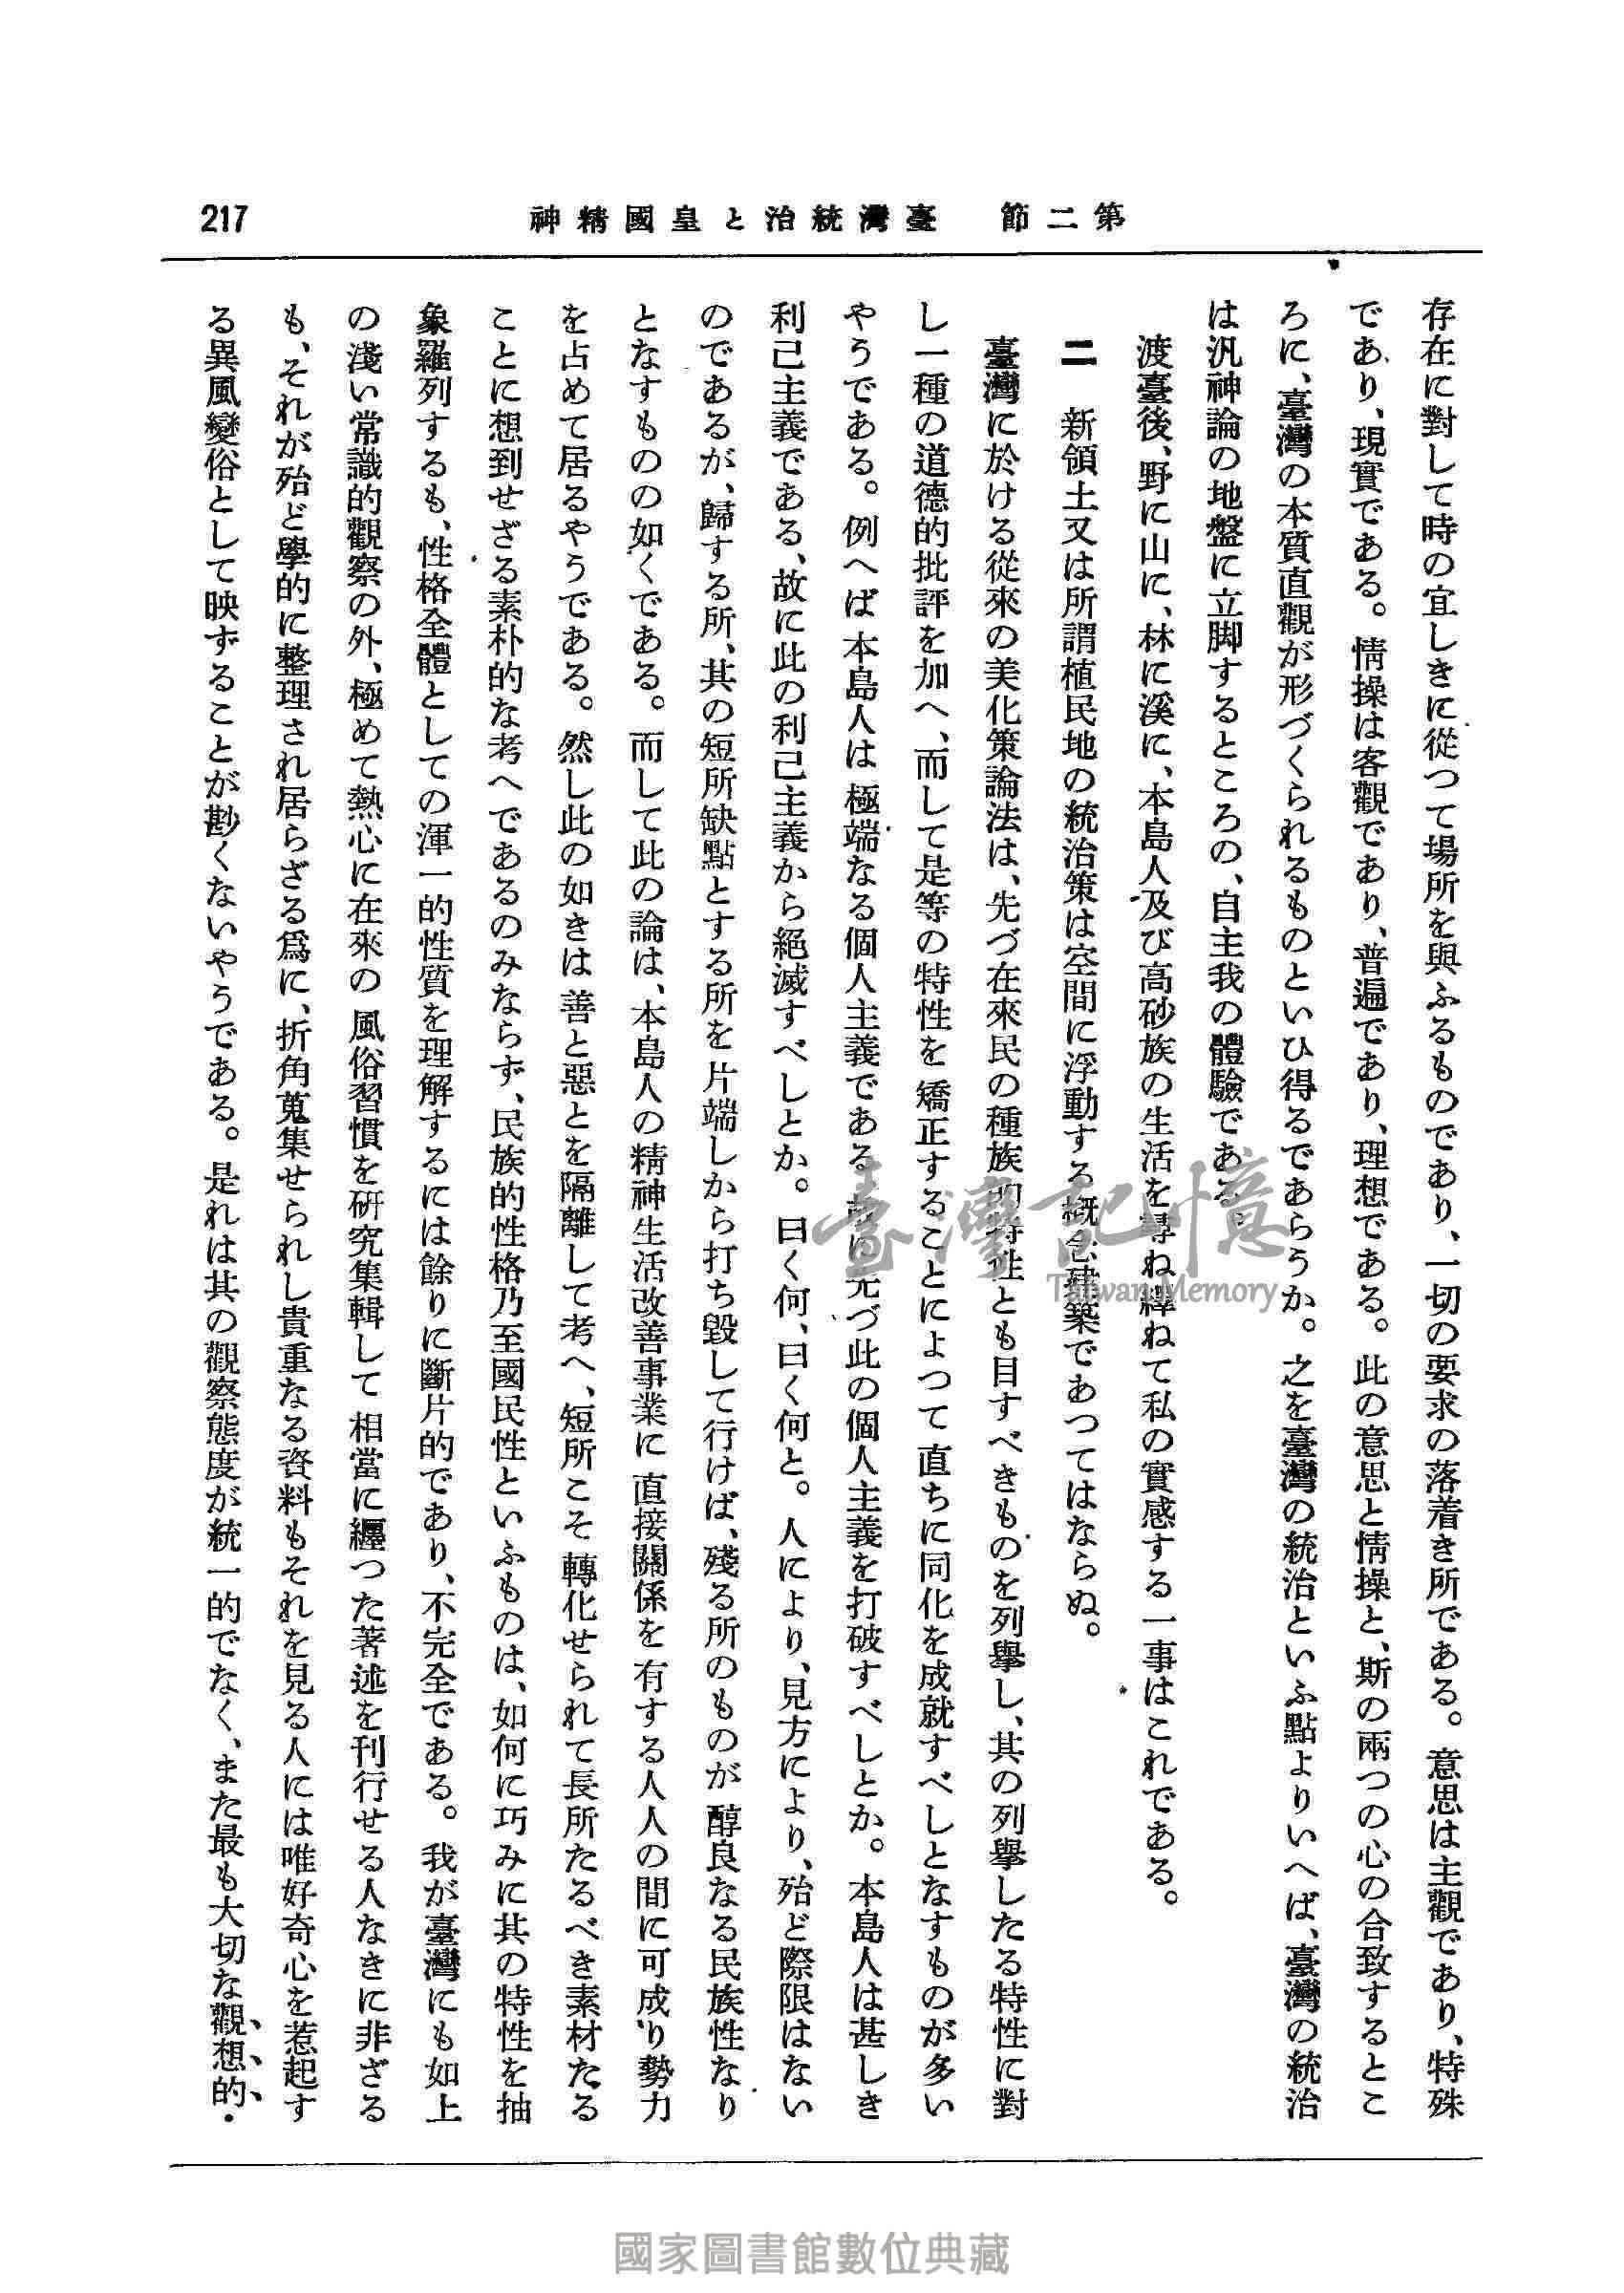 第二節　臺灣統治と皇國精神
217
存在に對して時の宜しきに從つて場所を與ふるものであり、一切の要求の落着き所である。意思は主觀であり、特殊
であり、現實である。情操は客觀であり、普遍であり、理想である。此の意思と情操と、斯の兩つの心の合致するとこ
ろに、臺灣の本質直觀が形づくられるものといひ得るであらうか。之を臺灣の統治といふ點よりいへば、臺灣の統治
は汎神論の地盤に立脚するところの、自主我の體驗である。
渡臺後、野に山に、林に溪に、本島人及び高砂族の生活を尋ね繹ねて私の實感する一事はこれである。
二　新領土又は所謂植民地の統治策は空間に浮動する概念建築であつてはならぬ。
臺灣に於ける從來の美化策論法は、先づ在來民の種族的特性とも目すべきものを列擧し、其の列擧したる特性に對
し一種の道德的批評を加へ、而して是等の特性を矯正することによつて直ちに同化を成就すべしとなすものが多い
やうである。例へば本島人は極端なる個人主義である、故に先づ此の個人主義を打破すべしとか。本島人は甚しき
利己主義である、故に此の利己主義から絕滅すべしとか。曰く何、曰く何と。人により、見方により、殆ど際限はない
のであるが、歸する所、其の短所缺點とする所を片端しから打ち毀して行けば、殘る所のものが醇良なる民族性なり
となすものの如くである。而して此の論は、本島人の精神生活改善事業に直接關係を有する人人の間に可成り勢力
を占めて居るやうである。然し此の如きは善と惡とを隔離して考へ、短所こそ轉化せられて長所たるべき素材たる
ことに想到せざる素朴的な考へであるのみならず、民族的性格乃至國民性といふものは、如何に巧みに其の特性を抽
象羅列するも、性格全體としての渾一的性質を理解するには餘りに斷片的であり、不完全である。我が臺灣にも如上
の淺い常識的觀察の外、極めて熱心に在來の風俗習慣を硏究集輯して相當に纒つた著述を刊行せる人なきに非ざる
も、それが殆ど學的に整理され居らざる爲に、折角蒐集せられし貴重なる資料もそれを見る人には唯好奇心を惹起す
る異風變俗として映ずることが尠くないやうである。是れは其の觀察態度が統一的でなく、また最も大切な觀想的・
臺灣記憶
Taiwan Memory
國家圖書館數位典藏